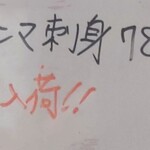 ンマ刺身 78
入荷!!